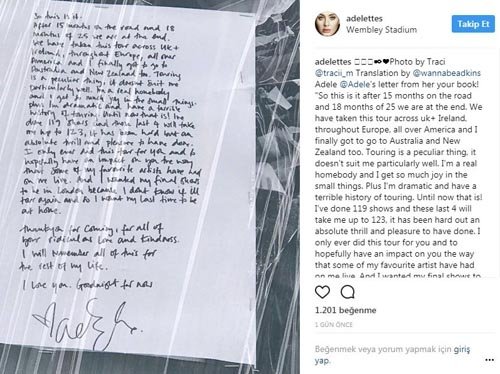 So this is it.
After 15 months on the road and 18
months of 25 we are at the end.
We have taken this tour across UK+
Ireland, throughout Europe, all over
America and I finally got to go to
Australia and New Zealand too. Touring
is a peculiar thing, it doesn't suit me
particularly well. I'm a real homebody
and I get so much joy in the small things.
Plus I'm dramatic and have a terrible
history of touring. Until now that is! I've
done 119 shows and these last 4 will take
me up to 123, it has been hard but an
absolute thrill and pleasure to have done.
I only ever did this tour for you and to
hopefully have an impact on you the way
that some of my favourite artists have had
on me live. And I wanted my final shows
to be in London because I don't know if I'll
tour again and so I want my last time to be
at home.
Thankyou for coming, for all of
your ridiculous love and kindness.
I will remember all of this for
the rest of my life.
I love you. Goodnight for now
Adele
adelettes
Wembley Stadium
Takip Et
adelettes Photo by Traci
@tracii_m Translation by @wannabeadkins
Adele @Adele's letter from her your book!
"So this is it after 15 months on the road
and 18 months of 25 we are at the end. We
have taken this tour across uk+ Ireland.
throughout Europe, all over America and I
finally got to go to Australia and New
Zealand too. Touring is a peculiar thing, it
doesn't suit me particularly well. I'm a real
homebody and I get so much joy in the
small things. Plus I'm dramatic and have a
terrible history of touring. Until now that is!
I've done 119 shows and these last 4 will
take me up to 123, it has been hard out an
absolute thrill and pleasure to have done. I
only ever did this tour for you and to
hopefully have an impact on you the way
that some of my favourite artist have had
on me live. And I wanted my final shows to
1.201 beğenme
1 GÜN ÖNCE
Beğenmek veya yorum yapmak için giriş
yap.